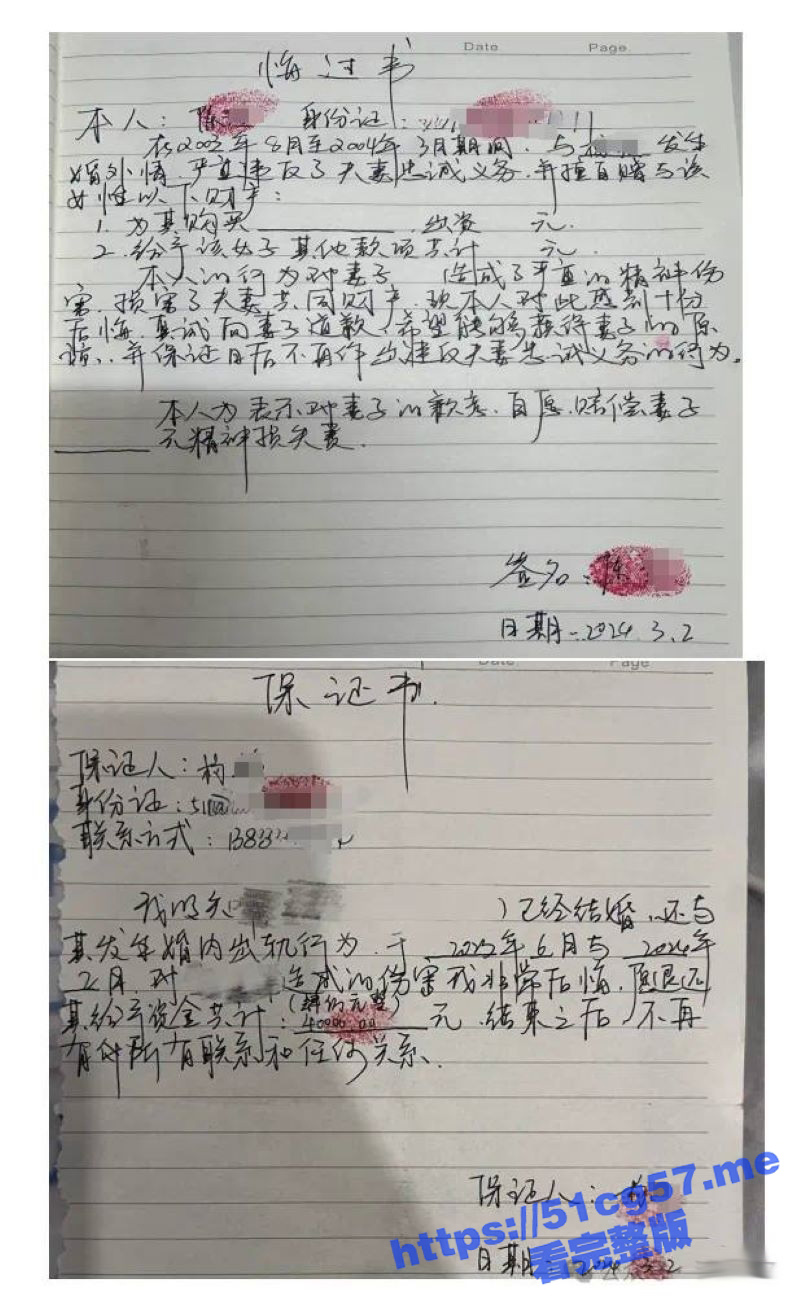 Date Page.
悔过书
本人：陈 身份证：
在2002年8月至2004年3月期间，与 发生
婚外情，严重违反了夫妻忠诚义务，并擅自赠与该
女性以下财产：
1. 为其购买 ，出资 元.
2. 给予该女子其他款项共计 元.
本人的行为对妻子 造成了严重的精神伤
害，损害了夫妻共同财产，现本人对此感到十份
后悔，真诚向妻子道歉，希望能够获得妻子的原
谅，并保证日后不再作出违反夫妻忠诚义务的行为。
本人为表示对妻子的歉意，自愿赔偿妻子
元精神损失费.
签名：陈
日期：2024.3.2
Date Page
保证书.
保证人：杨
身份证：51
联系方式：
我明知 ）已经结婚，还与
其发生婚内出轨行为，于 年6月与 年
2月，对 造成的伤害我非常后悔，愿退还
其给予资金共计：40000.00 元，结束之后，不再
有任所有联系和任何关系.
保证人：杨
日期： 2024.3.2
https://51cg57.me
看完整版